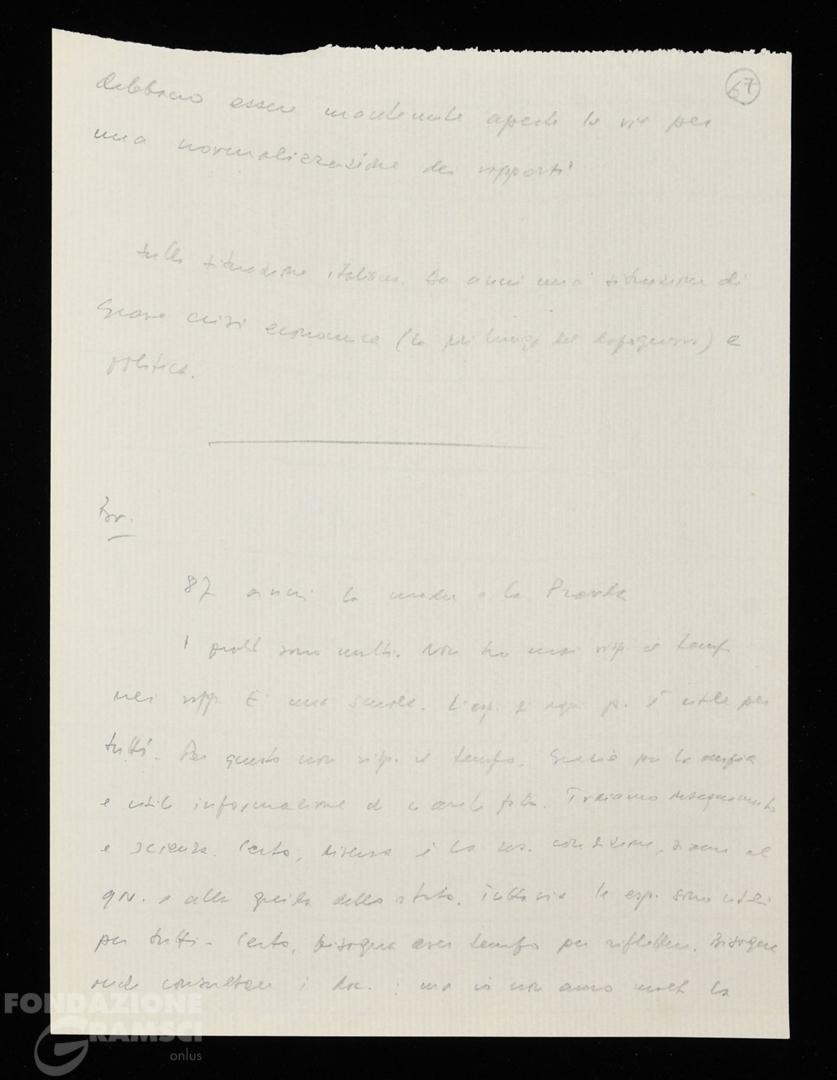 67
debbano essere mantenute aperte le vie per
una normalizzazione dei rapporti
sulla situazione italiana. Da anni una situazione di
grave crisi economica (la più lunga del dopoguerra) e
politica.
87 anni la madre a la Pravda
I probl sono molti. Non ho mai risp. il tempo
nei rapp. E' una scuola. L'esp. di ogni p. è utile per
tutti. Per questo non risp. il tempo. Grazie per la
e utile informazione che ci avete fatto. Traiamo insegnamento
e scienza. Certo, diversa è la vs. condizione, siamo al
gov. e alla guida dello stato. Tuttavia le esp. sono utili
per tutti. Certo, bisogna aver tempo per riflettere. Bisogna
consultare i doc. : ma io non amo molt la
FONDAZIONE
GRAMSCI
onlus